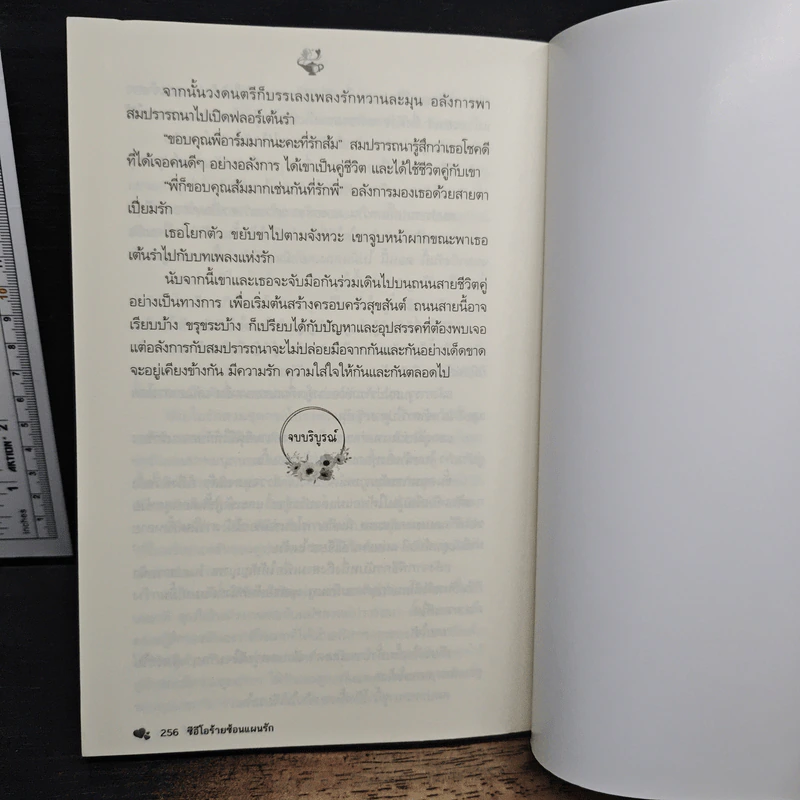 จากนั้นวงดนตรีก็บรรเลงเพลงรักหวานละมุน อลังการพา
สมปรารถนาไปเปิดฟลอร์เต้นรำ
"ขอบคุณพี่อาร์มมากนะคะที่รักส้ม" สมปรารถนารู้สึกว่าเธอโชคดี
ที่ได้เจอคนดีๆ อย่างอลังการ ได้เขาเป็นคู่ชีวิต และได้ใช้ชีวิตคู่กับเขา
"พี่ก็ขอบคุณส้มมากเช่นกันที่รักพี่" อลังการมองเธอด้วยสายตา
เปี่ยมรัก
เธอโยกตัว ขยับขาไปตามจังหวะ เขาจูบหน้าผากขณะพาเธอ
เต้นรำไปกับบทเพลงแห่งรัก
นับจากนี้เขาและเธอจะจับมือกันร่วมเดินไปบนถนนสายชีวิตคู่
อย่างเป็นทางการ เพื่อเริ่มต้นสร้างครอบครัวสุขสันต์ ถนนสายนี้อาจ
เรียบบ้าง ขรุขระบ้าง ก็เปรียบได้กับปัญหาและอุปสรรคที่ต้องพบเจอ
แต่อลังการกับสมปรารถนาจะไม่ปล่อยมือจากกันและกันอย่างเด็ดขาด
จะอยู่เคียงข้างกัน มีความรัก ความใส่ใจให้กันและกันตลอดไป
จบบริบูรณ์
256 ซีอีโอร้ายซ่อนแผนรัก
10
inches 1 2